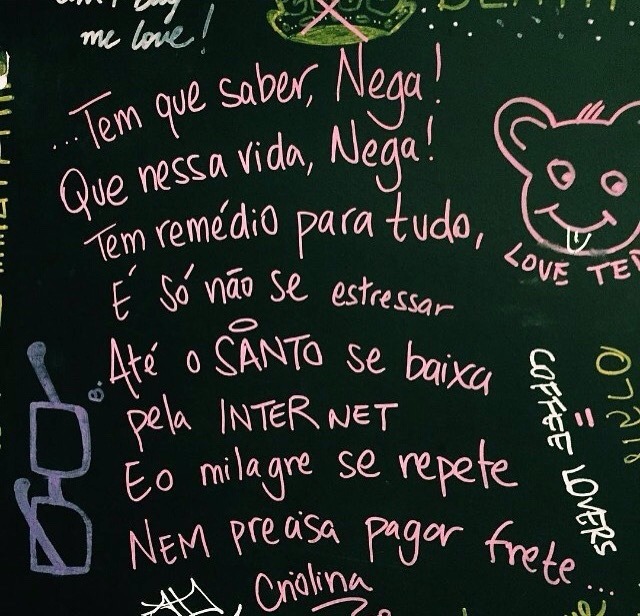 me love!
...Tem que saber, Nega!
Que nessa vida, Nega!
Tem remédio para tudo,
LOVE TED
É só não se estressar
Até o SANTO se baixa
pela INTERNET
COFFEE = LOVERS
E o milagre se repete
NEM precisa pagar frete...
Criolina